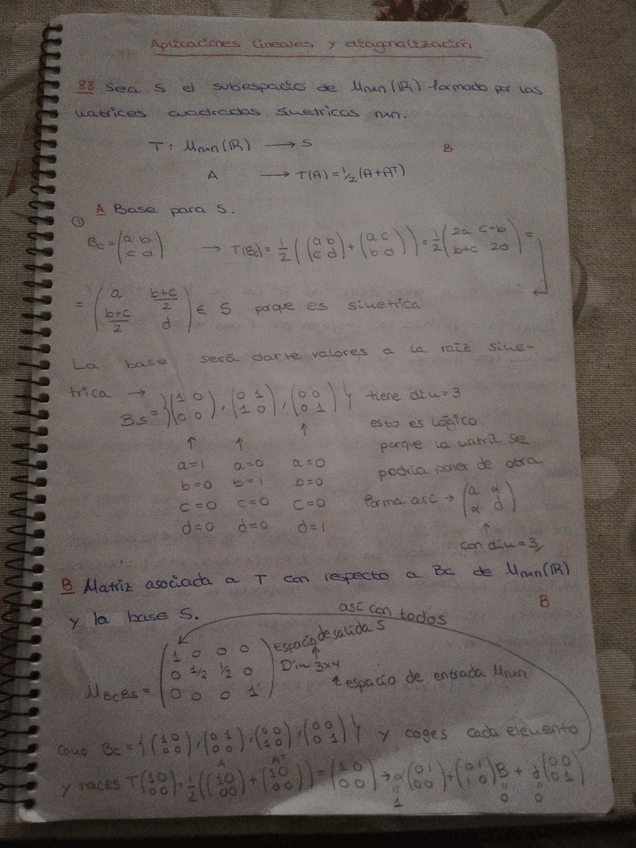 Aplicaciones lineales y diagonalización
88 Sea S el subespacio de Mnxn(ℝ) formado por las
matrices cuadradas simetricas nxn.
T: Mnxn(ℝ) → S B
A → T(A) = 1/2 (A+Aᵀ)
A Base para S.
① Bc = (a b; c d) → T(Bc) = 1/2 ((a b; c d) + (a c; b d)) = 1/2 (2a c+b; b+c 2d) =
= (a (b+c)/2; (b+c)/2 d) ∈ S porque es simetrica
La base será darle valores a la raiz sime-
trica → Bs = {(1 0; 0 0), (0 1; 1 0), (0 0; 0 1)} tiene dim=3
esto es lógico
↑ ↑ ↑ porque la matriz se
a=1 a=0 a=0 podria poner de otra
b=0 b=1 b=0
c=0 c=0 c=0 forma así → (a α; α d)
d=0 d=0 d=1 ↑
con dim=3,
B Matriz asociada a T con respecto a Bc de Mnxn(ℝ)
y la base S. B
así con todos
MBcBs = (1 0 0 0; 0 1/2 1/2 0; 0 0 0 1) Espacio de salida S
↑
Dim 3x4
↑ espacio de entrada Mnxn
como Bc = {(1 0; 0 0), (0 1; 0 0), (0 0; 1 0), (0 0; 0 1)} y coges cada elemento
A Aᵀ
y haces T(1 0; 0 0) = 1/2 ((1 0; 0 0) + (1 0; 0 0)) = (1 0; 0 0) → α(0 1; 0 0) + (0 1; 1 0)β + d(0 0; 0 1)
= 1 = 0 = 0